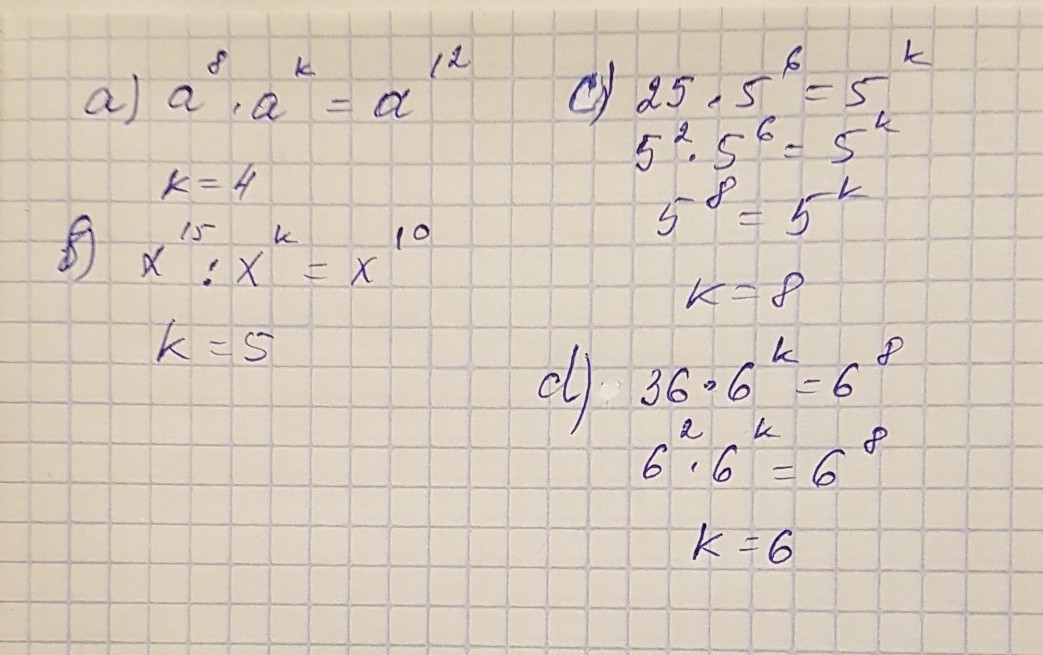 a) a⁸ · aᵏ = a¹²
k = 4
б) x¹⁵ : xᵏ = x¹⁰
k = 5
c) 25 · 5⁶ = 5ᵏ
5² · 5⁶ = 5ᵏ
5⁸ = 5ᵏ
k = 8
d) 36 · 6ᵏ = 6⁸
6² · 6ᵏ = 6⁸
k = 6